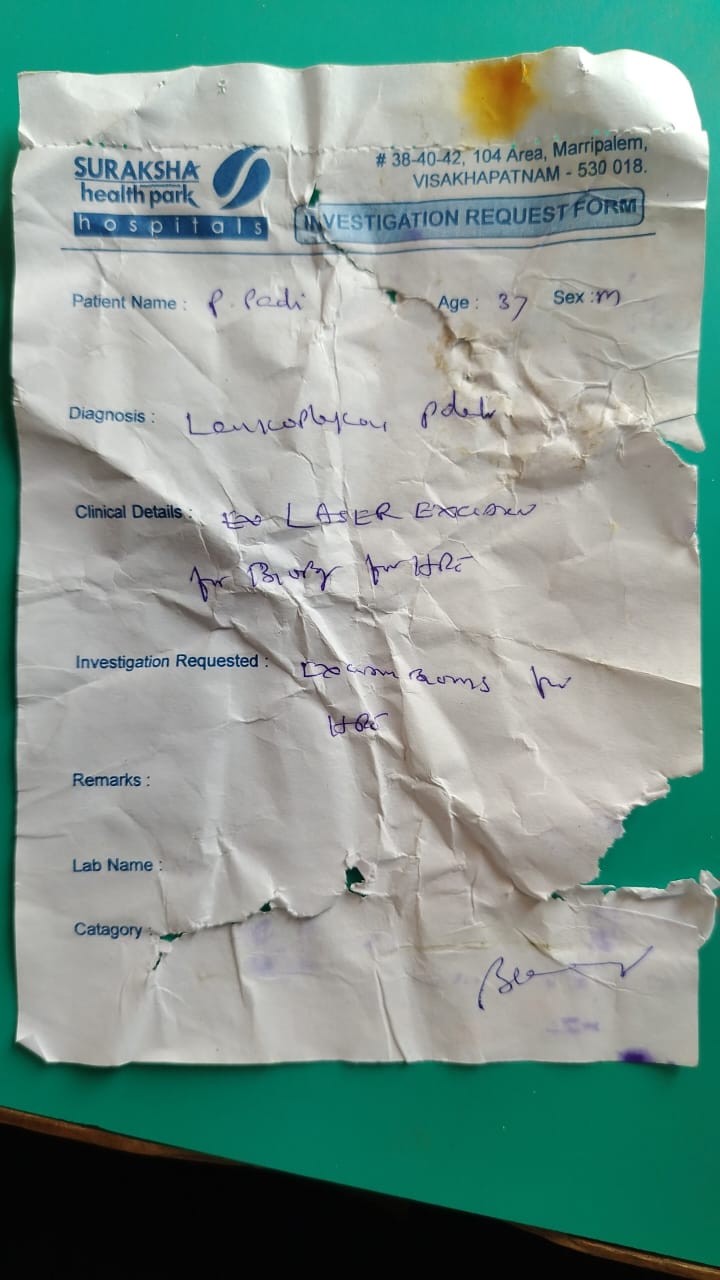 SURAKSHA
health park
hospitals
# 38-40-42, 104 Area, Marripalem,
VISAKHAPATNAM - 530 018.
INVESTIGATION REQUEST FORM
Patient Name : P. Padi Age : 37 Sex : M
Diagnosis :
Clinical Details : LASER Excision
for Biopsy for HPE
Investigation Requested : for
HPE
Remarks :
Lab Name :
Catagory :